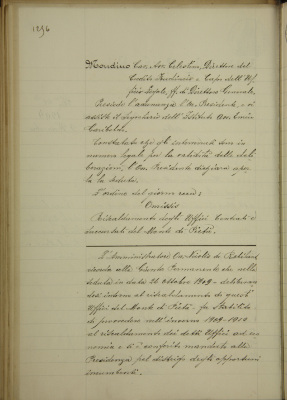 1296
Mondino Cav. Avv. Celestino, Direttore del
Credito Fondiario e Capo dell'Uf-
ficio Legale, ff. di Direttore Generale.
Presiede l'adunanza l'On. Presidente, e vi
assiste il Segretario dell'Istituto Avv.
Constatato che gli intervenuti sono in
numero legale per la validità delle deli-
berazioni, l'On. Presidente dichiara aper-
ta la seduta.
L'ordine del giorno reca:
Omissis
Riscaldamento degli Uffici Centrali e
del Monte di Pietà.
L'Amministratore Con. Nicolis di Robilant
alla Giunta Permanente che nella
seduta in data 26 Ottobre 1909 - delibera-
tosi intorno al riscaldamento di questi
Uffici del Monte di Pietà - fu stabilito
di provvedere nell'inverno 1909-1910
al riscaldamento dei detti Uffici ed eco-
nomia e si è conferito mandato alla
Presidenza pel disbrigo degli opportuni
incombenti.